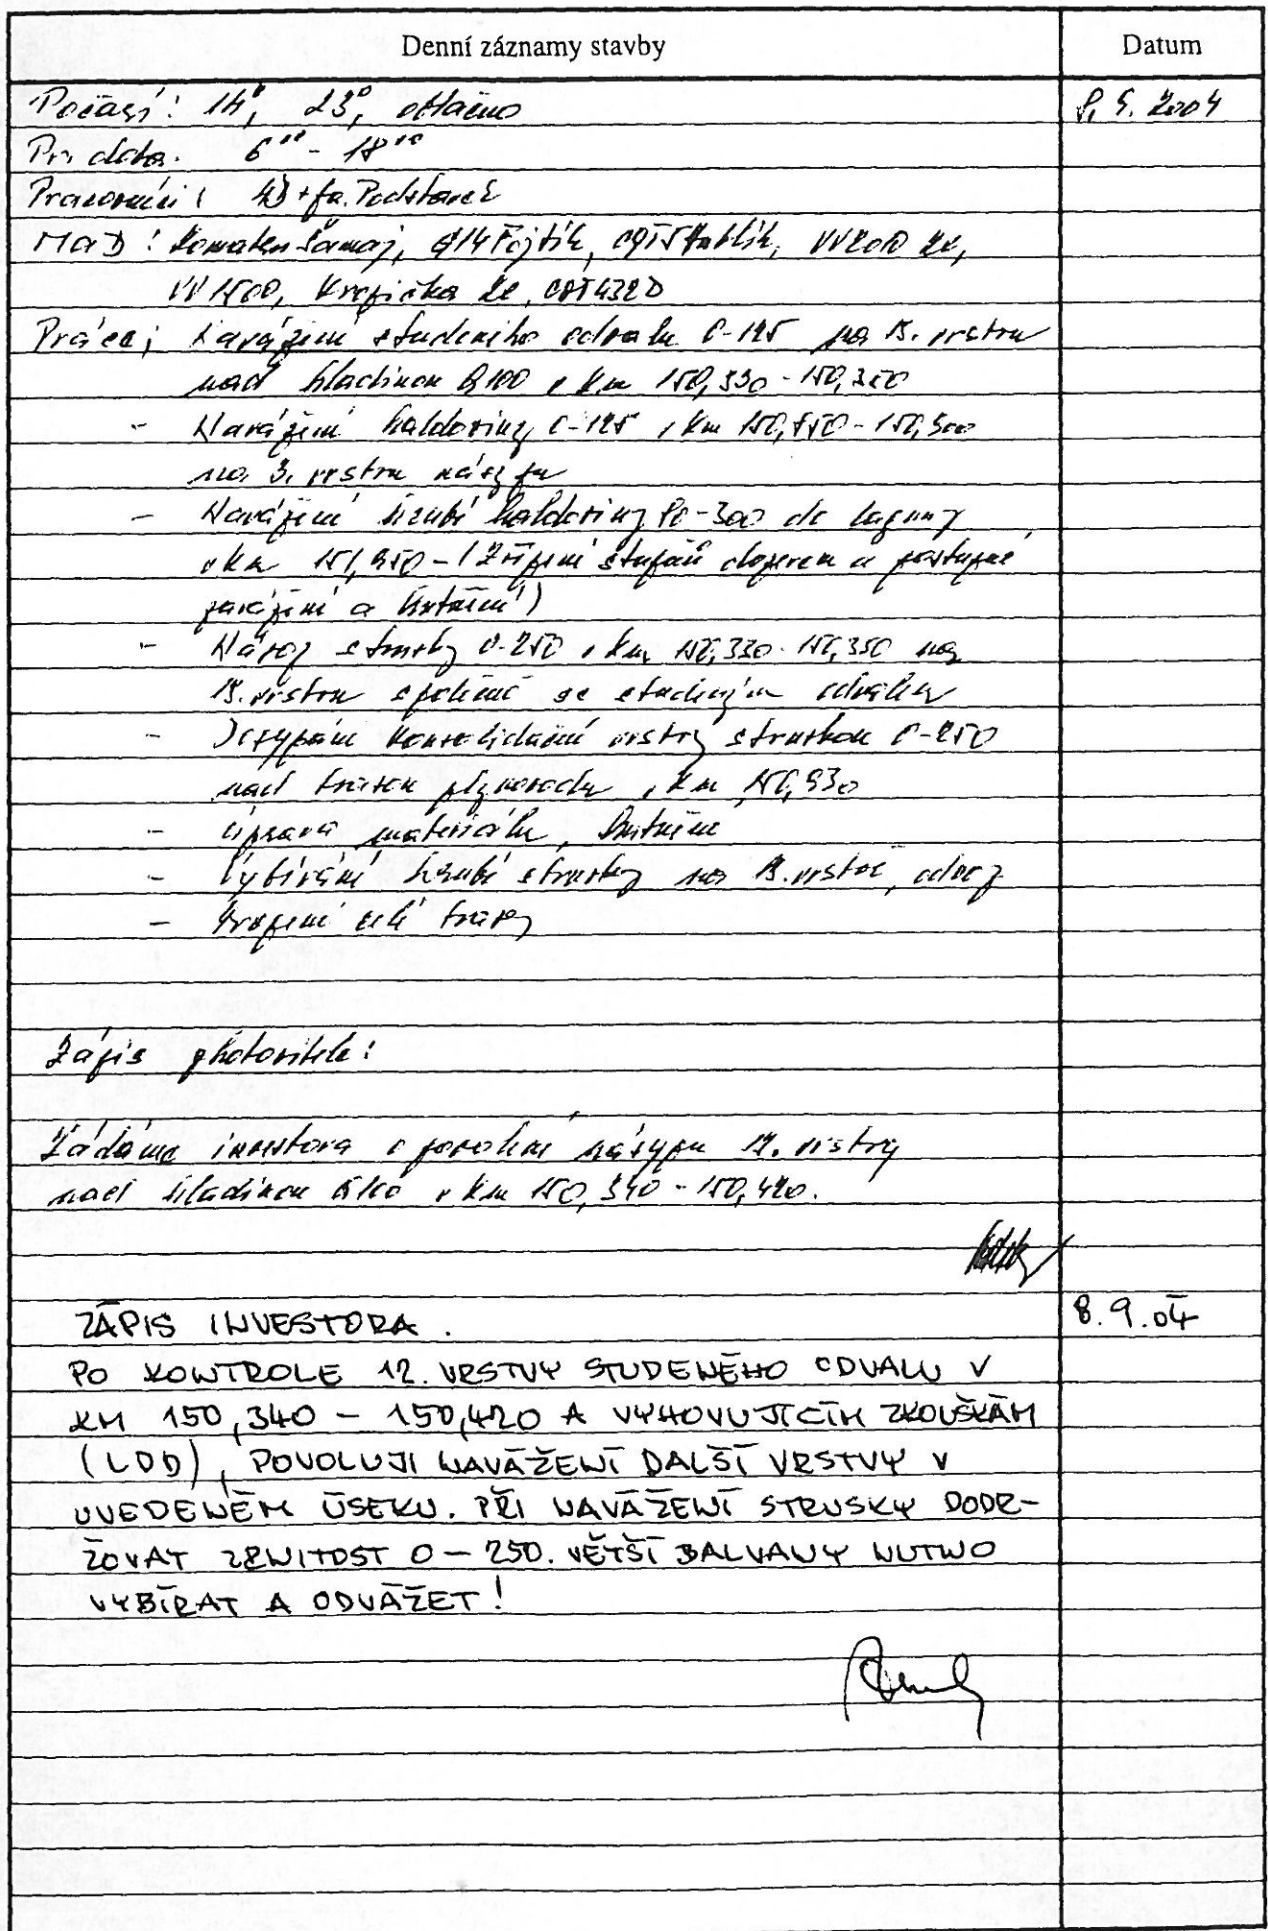 Denní záznamy stavby Datum
Počasí: 14°, 23°, oblačno 8. 9. 2004
Pr. doba: 6⁰⁰ - 18⁰⁰
Pracovníci: + fa.
MaD: Komatsu Šamaj, Fojtík,
VV 1500, Kropička
Práce: Navážení studeného odvalu 0-125 na 13. vrstvu
nad hladinou Q100 v km 150,330 - 150,350
- Navážení haldoviny 0-125 v km 150,500
na 3. vrstvu násypu
- Navážení hrubé haldoviny -300 do laguny
v km 151,950 - (Zřízení stupňů dozerem a postupné
zavážení a hutnění)
- Návoz strusky 0-250 v km 150,330 - 150,350 na
13. vrstvu společně se studeným odvalem
- Dosypání konsolidační vrstvy struskou 0-250
nad trasou plynovodu v km 150,930
- Úprava materiálu, hutnění
- Vybírání hrubé strusky na 13. vrstvě, odvoz
- Kropení celé trasy
Zápis zhotovitele:
Žádáme investora o povolení násypu vrstvy
nad hladinou Q100 v km 150,340 - 150,420.
ZÁPIS INVESTORA. 8.9.04
PO KONTROLE 12. VRSTVY STUDENÉHO ODVALU V
KM 150,340 - 150,420 A VYHOVUJÍCÍM ZKOUŠKÁM
(LDD), POVOLUJI NAVÁŽENÍ DALŠÍ VRSTVY V
UVEDENÉM ÚSEKU. PŘI NAVÁŽENÍ STRUSKY DODR-
ŽOVAT ZRNITOST 0 - 250. VĚTŠÍ BALVANY NUTNO
VYBÍRAT A ODVÁŽET!